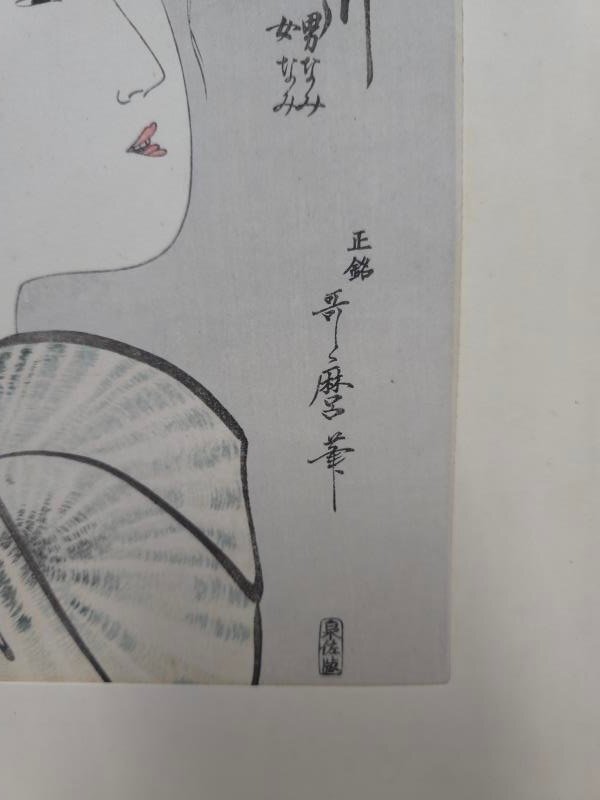 男なみ
女なみ
正銘
哥麿筆
泉佐版